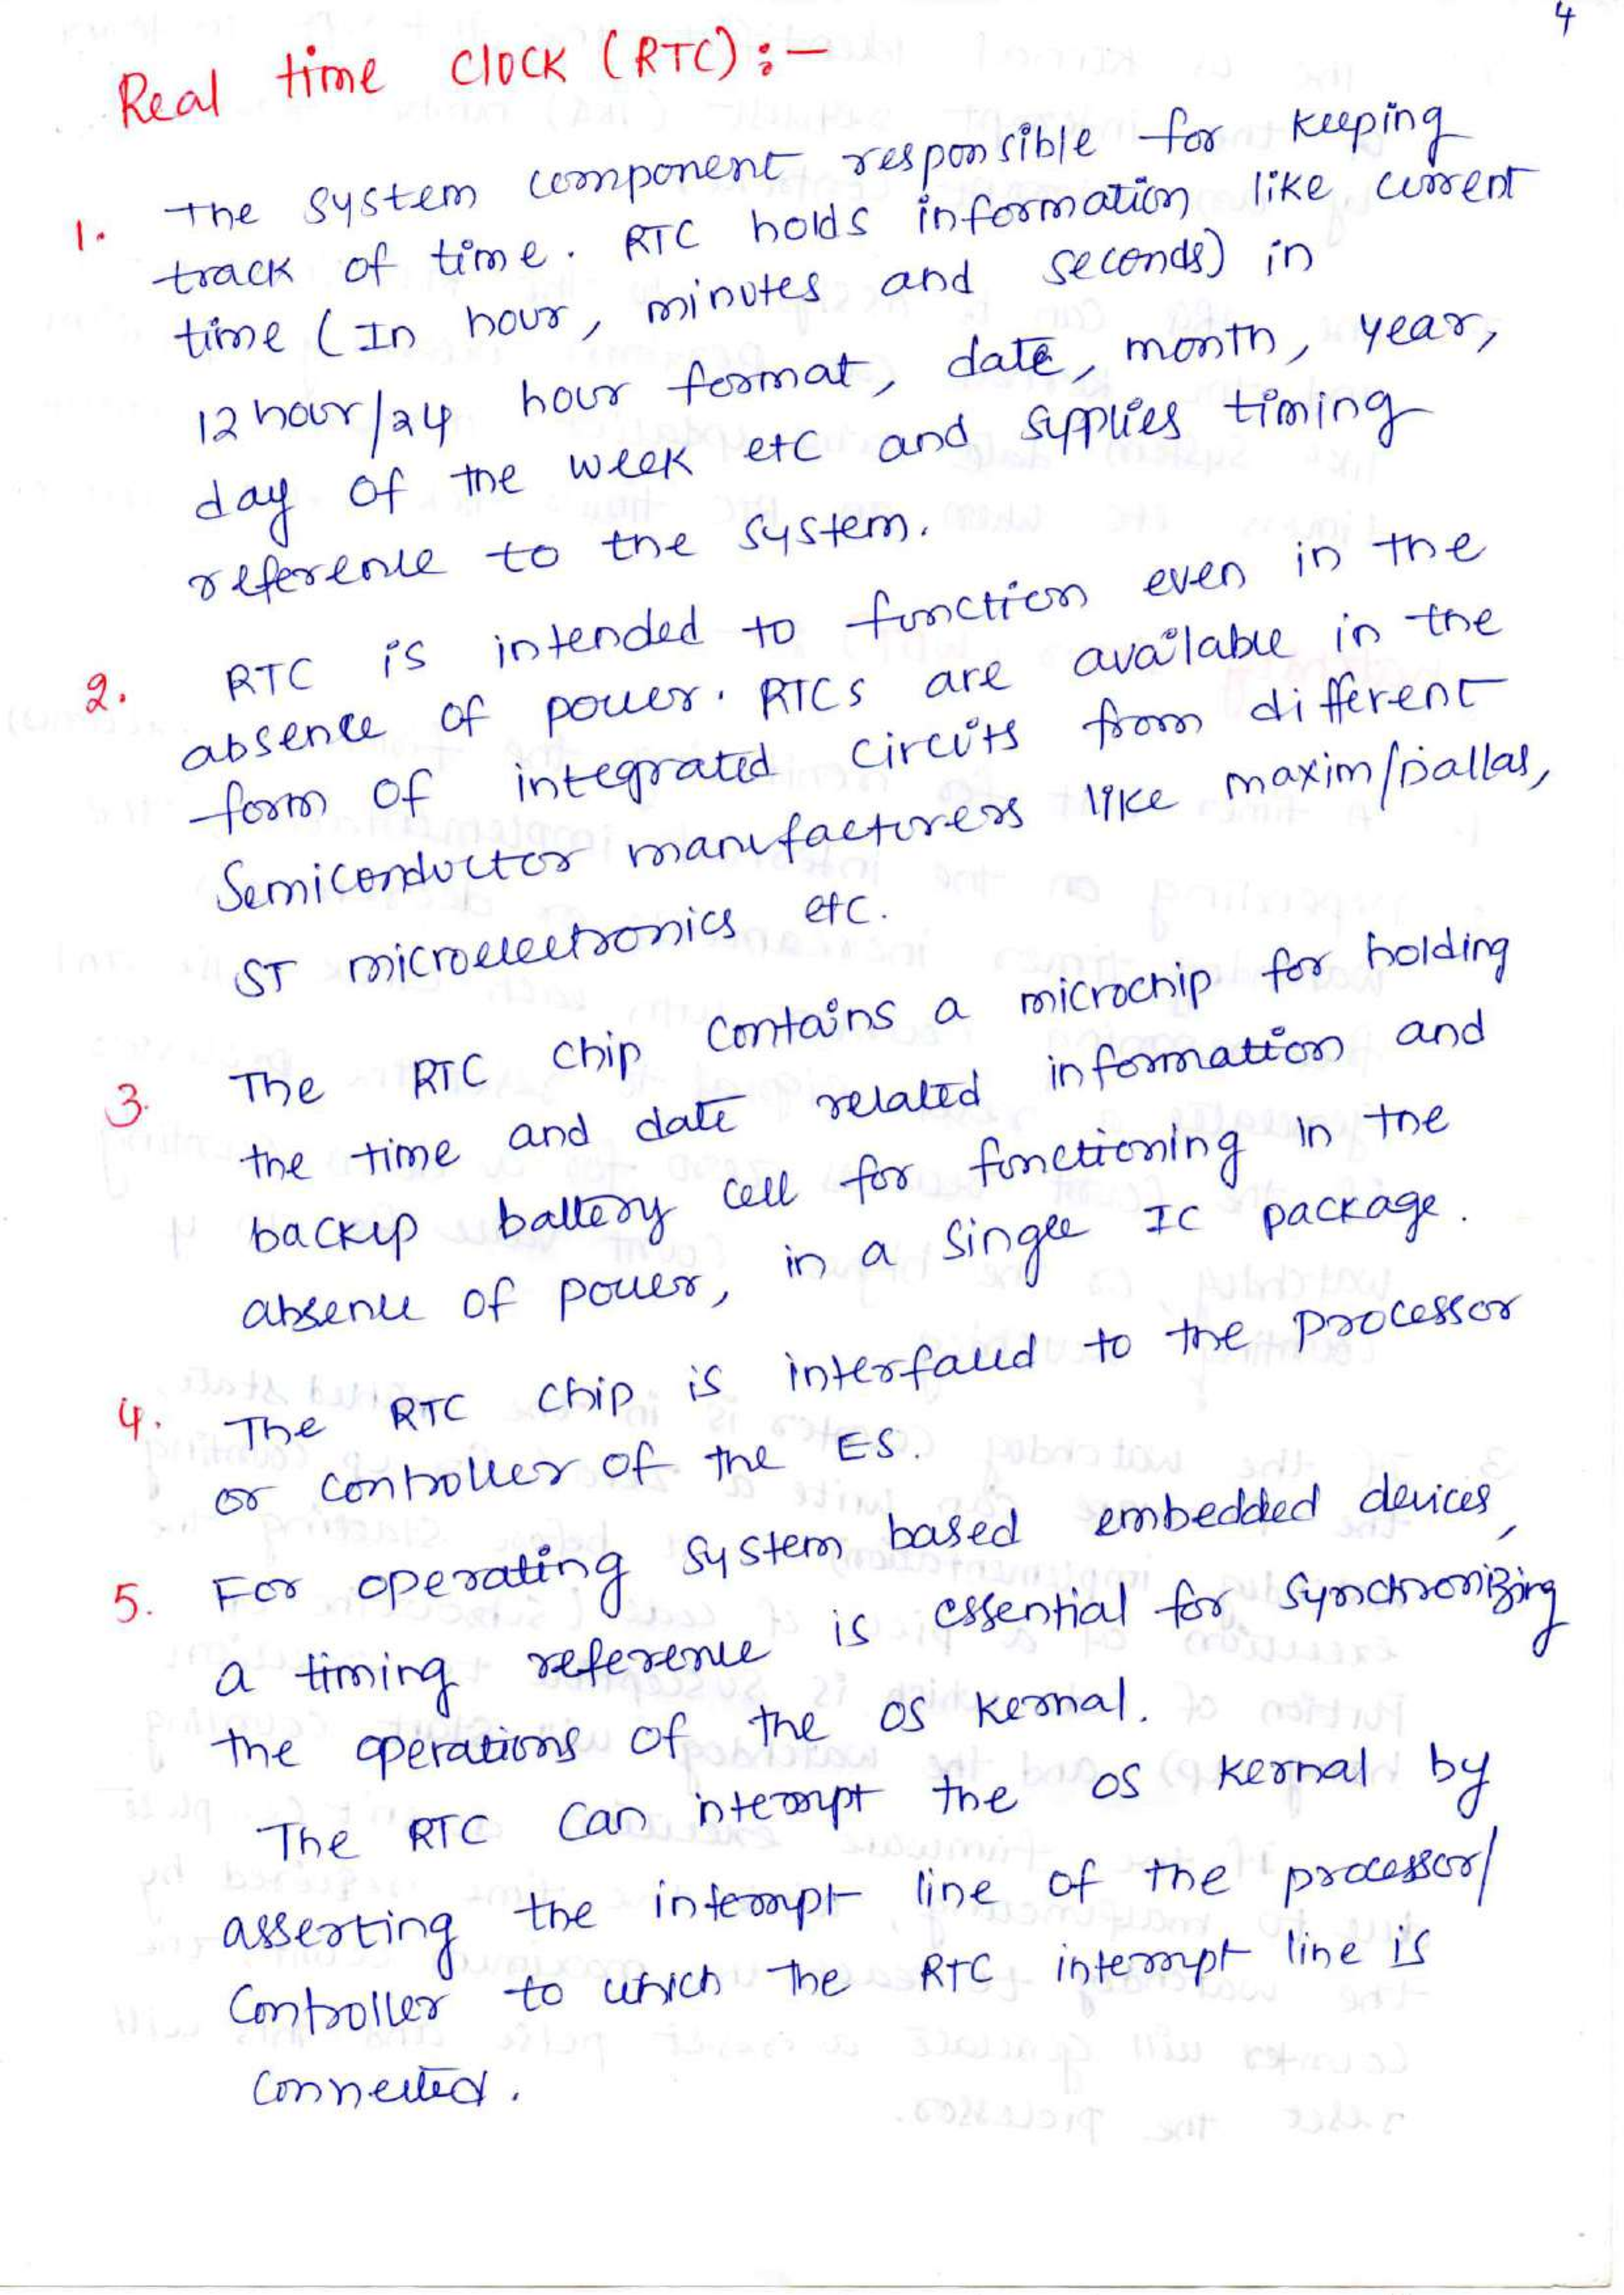 4
Real time clock (RTC) :-
1. The system component responsible for keeping
track of time. RTC holds information like current
time (In hour, minutes and seconds) in
12 hour/24 hour format, date, month, year,
day of the week etc and supplies timing
reference to the system.
2. RTC is intended to function even in the
absence of power. RTCs are available in the
form of integrated circuits from different
Semiconductor manufacturers like maxim/Dallas,
ST microelectronics etc.
3. The RTC chip contains a microchip for holding
the time and date related information and
backup battery cell for functioning in the
absence of power, in a single IC package.
4. The RTC chip is interfaced to the processor
or controller of the ES.
5. For operating system based embedded devices,
a timing reference is essential for synchronizing
the operations of the OS kernal.
The RTC can interrupt the OS kernal by
asserting the interrupt line of the processor/
controller to which the RTC interrupt line is
connected.